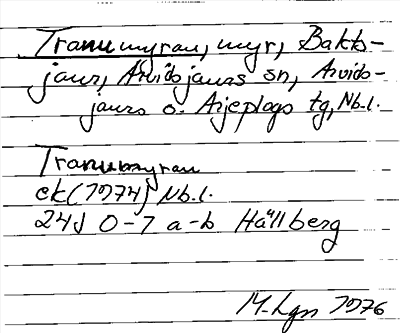 Tranumyran, myr, Bakts-
jaur, Arvidsjaurs sn, Arvids-
jaurs o. Arjeplogs tg, Nb.l.
Tranumyran
ek (1974) Nb.l.
24J 0-7 a-b Hällberg
M-Lgn 1976